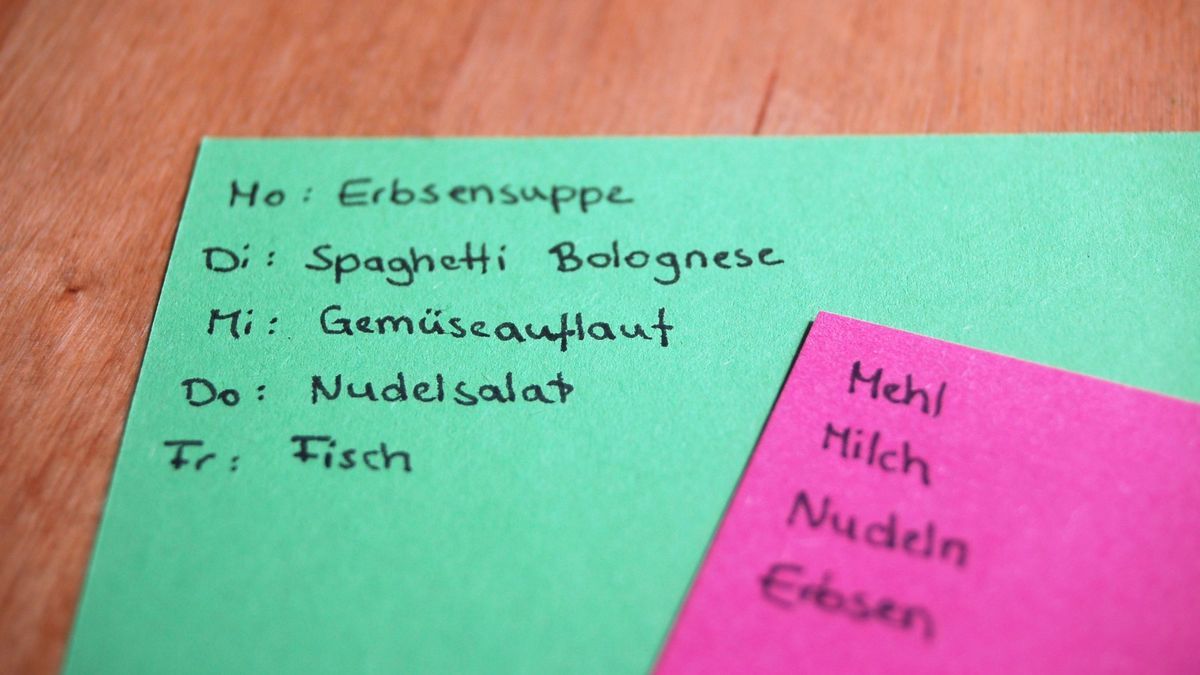 Mo: Erbsensuppe
Di: Spaghetti Bolognese
Mi: Gemüseauflauf
Do: Nudelsalat
Fr: Fisch
Mehl
Milch
Nudeln
Erbsen